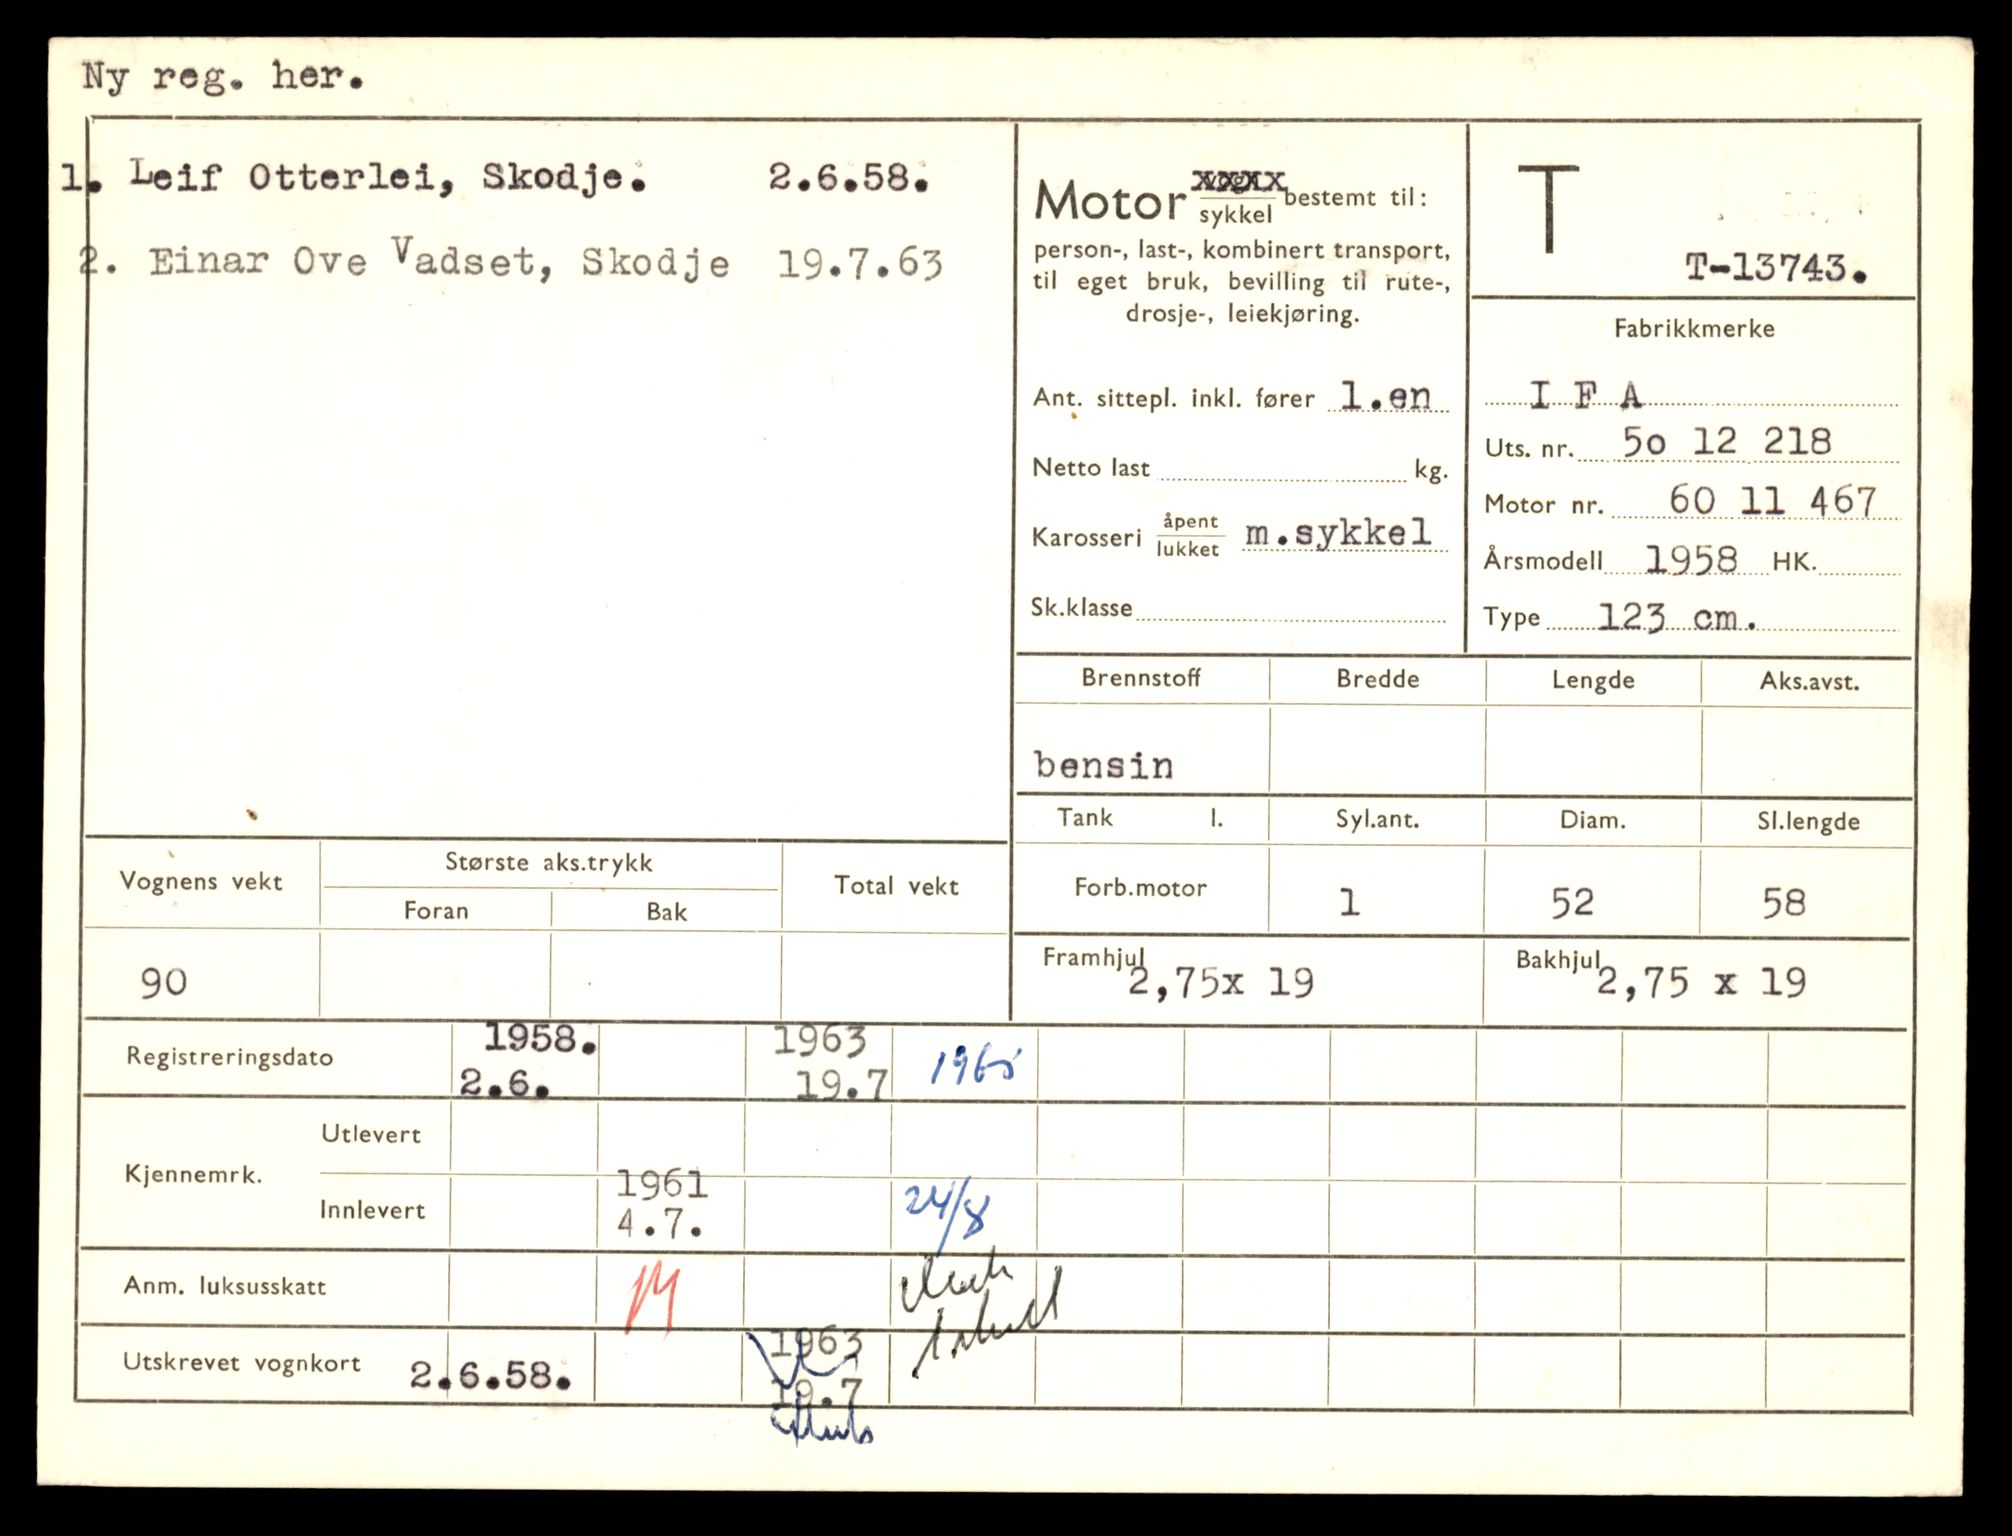 Ny reg. her.
1. Leif Otterlei, Skodje. 2.6.58.
2. Einar Ove Vadset, Skodje 19.7.63
Motor vogn xxxx sykkel bestemt til:
person-, last-, kombinert transport,
til eget bruk, bevilling til rute-,
drosje-, leiekjøring.
Ant. sittepl. inkl. fører 1.en
Netto last kg.
Karosseri åpent lukket m.sykkel
Sk.klasse
T
T-13743.
Fabrikkmerke
I F A
Uts. nr. 5o 12 218
Motor nr. 60 11 467
Årsmodell 1958 HK.
Type 123 cm.
Brennstoff Bredde Lengde Aks.avst.
bensin
Tank l. Syl.ant. Diam. Sl.lengde
Forb.motor 1 52 58
Framhjul 2,75x 19 Bakhjul 2,75 x 19
Vognens vekt Største aks.trykk Total vekt
Foran Bak
90
Registreringsdato 1958. 1963 1965
2.6. 19.7
Kjennemrk. Utlevert
Innlevert 1961 24/8
4.7.
Anm. luksusskatt M
Utskrevet vognkort 2.6.58. 1963
19.7